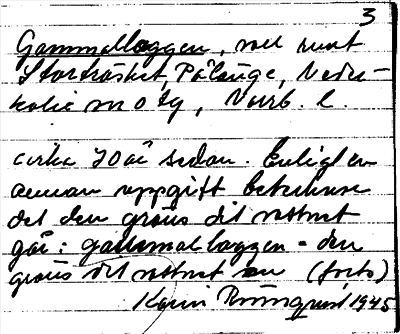 3
Gammalloggen, vall runt
Storträsket, Pålänge, Neder-
kalix m o lg, Norrb. l.
cirka 70 år sedan. Enligt en
annan uppgift betecknar
det den gräns dit vattnet
går: gammalloggen = den
gräns dit vattnet
Karin Rönnqvist 1945